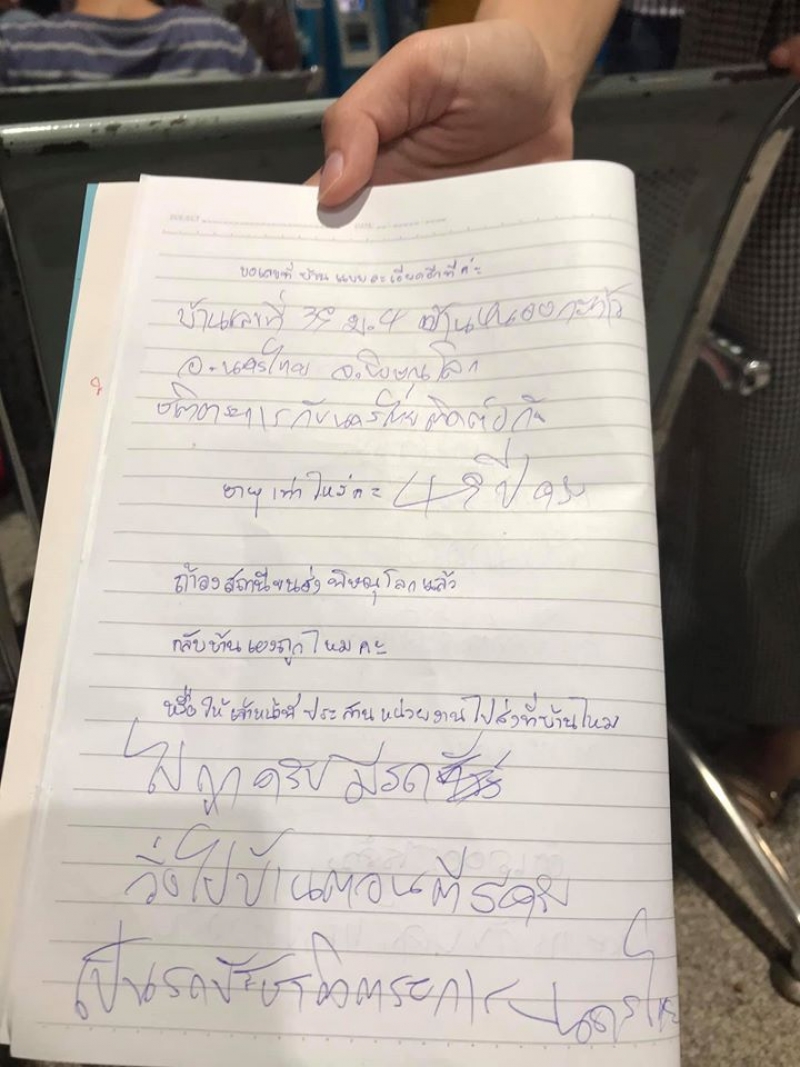 ขอเลขที่ บ้าน แบบละเอียดอีกที ค่ะ
บ้านเลขที่ 39 ม.4 บ้านหนองกะท้าว
อ.นครไทย จ.พิษณุโลก
ชาติตระการกับนครไทยติดต่อกัน
อายุ เท่าไหร่คะ 47 ปี ครับ
ถ้าลงสถานีขนส่ง พิษณุโลก แล้ว
กลับบ้าน เองถูกไหม คะ
หรือ ให้ เจ้าหน้าที่ ประสาน หน่วยงาน ไปส่งที่บ้านไหม
ไปถูกครับ มีรถ
วิ่งไปบ้านตอนตี
เป็นรถ ชาติตระการ - นครไทย